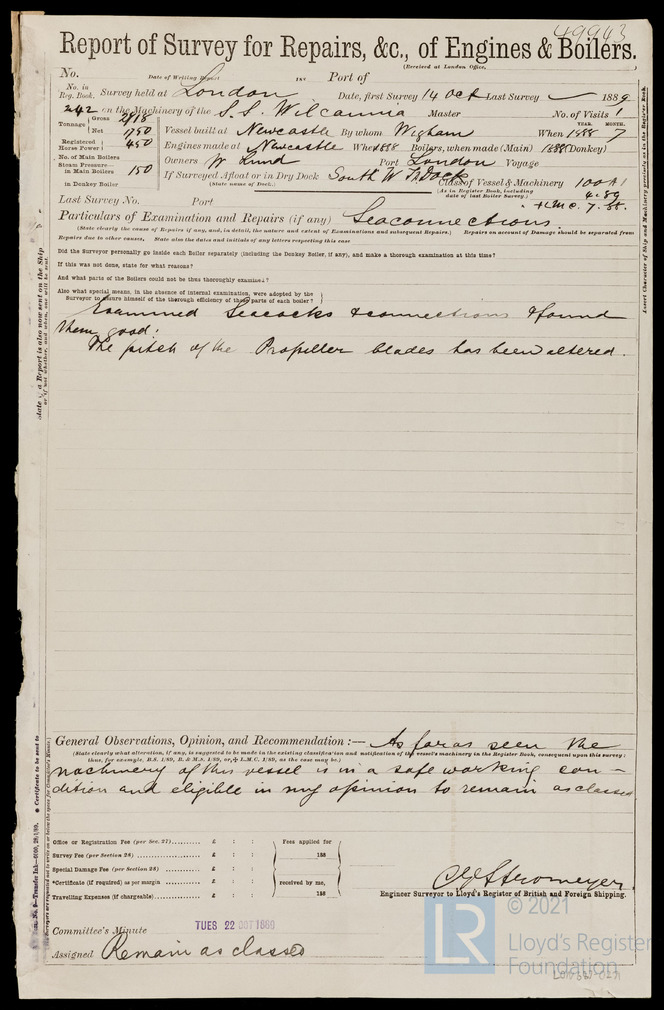 49943
Report of Survey for Repairs, &c., of Engines & Boilers.
(Received at London Office,
No. Date of Writing Report 188 Port of
No. in Reg. Book. Survey held at London Date, first Survey 14 Oct Last Survey 1889
242 on the Machinery of the S.S. Wilcannia Master No. of Visits 1
Tonnage Gross 2718 Net 1750 Vessel built at Newcastle By whom Wigham When 1888 YEAR. MONTH. 7
Registered Horse Power 450 Engines made at Newcastle When 1888 Boilers, when made (Main) 1888 (Donkey)
No. of Main Boilers Owners W Lund Port London Voyage
Steam Pressure in Main Boilers 150 If Surveyed Afloat or in Dry Dock South W I Dock
(State name of Dock.)
in Donkey Boiler Class of Vessel & Machinery 100 A1
(As in Register Book, including date of last Boiler Survey.) 4.89
Last Survey No. Port + LMC. 7.88.
Particulars of Examination and Repairs (if any) Seaconnections.
(State clearly the cause of Repairs if any, and, in detail, the nature and extent of Examinations and subsequent Repairs.) Repairs on account of Damage should be separated from
Repairs due to other causes, State also the dates and initials of any letters respecting this case
Did the Surveyor personally go inside each Boiler separately (including the Donkey Boiler, if any), and make a thorough examination at this time?
If this was not done, state for what reasons?
And what parts of the Boilers could not be thus thoroughly examined?
Also what special means, in the absence of internal examination, were adopted by the
Surveyor to assure himself of the thorough efficiency of those parts of each boiler?
Examined Seacocks & connections & found
them good.
The pitch of the Propeller blades has been altered.
General Observations, Opinion, and Recommendation :— As far as seen the
(State clearly what alteration, if any, is suggested to be made in the existing classification and notification of the vessel's machinery in the Register Book, consequent upon this survey ;
thus, for example, B.S. 1/89, B. & M.S. 1/89, or, ✠ L.M.C. 1/89, as the case may be.)
machinery of this vessel is in a safe working con-
dition and eligible in my opinion to remain as classed
Office or Registration Fee (per Sec. 27) £ : : Fees applied for
Survey Fee (per Section 28) £ : : 188
Special Damage Fee (per Section 28) £ : :
*Certificate (if required) as per margin £ : : received by me,
Travelling Expenses (if chargeable) £ : : 188
C E Stromeyer.
Engineer Surveyor to Lloyd's Register of British and Foreign Shipping.
Committee's Minute TUES 22 OCT 1889
Assigned Remain as classed
State if a Report is also now sent on the Ship
or if not whether, and when, one will be sent.
* Certificate to be sent to
Insert Character of Ship and Machinery precisely as in the Register Book.
LR
© 2021
Lloyd's Register
Foundation